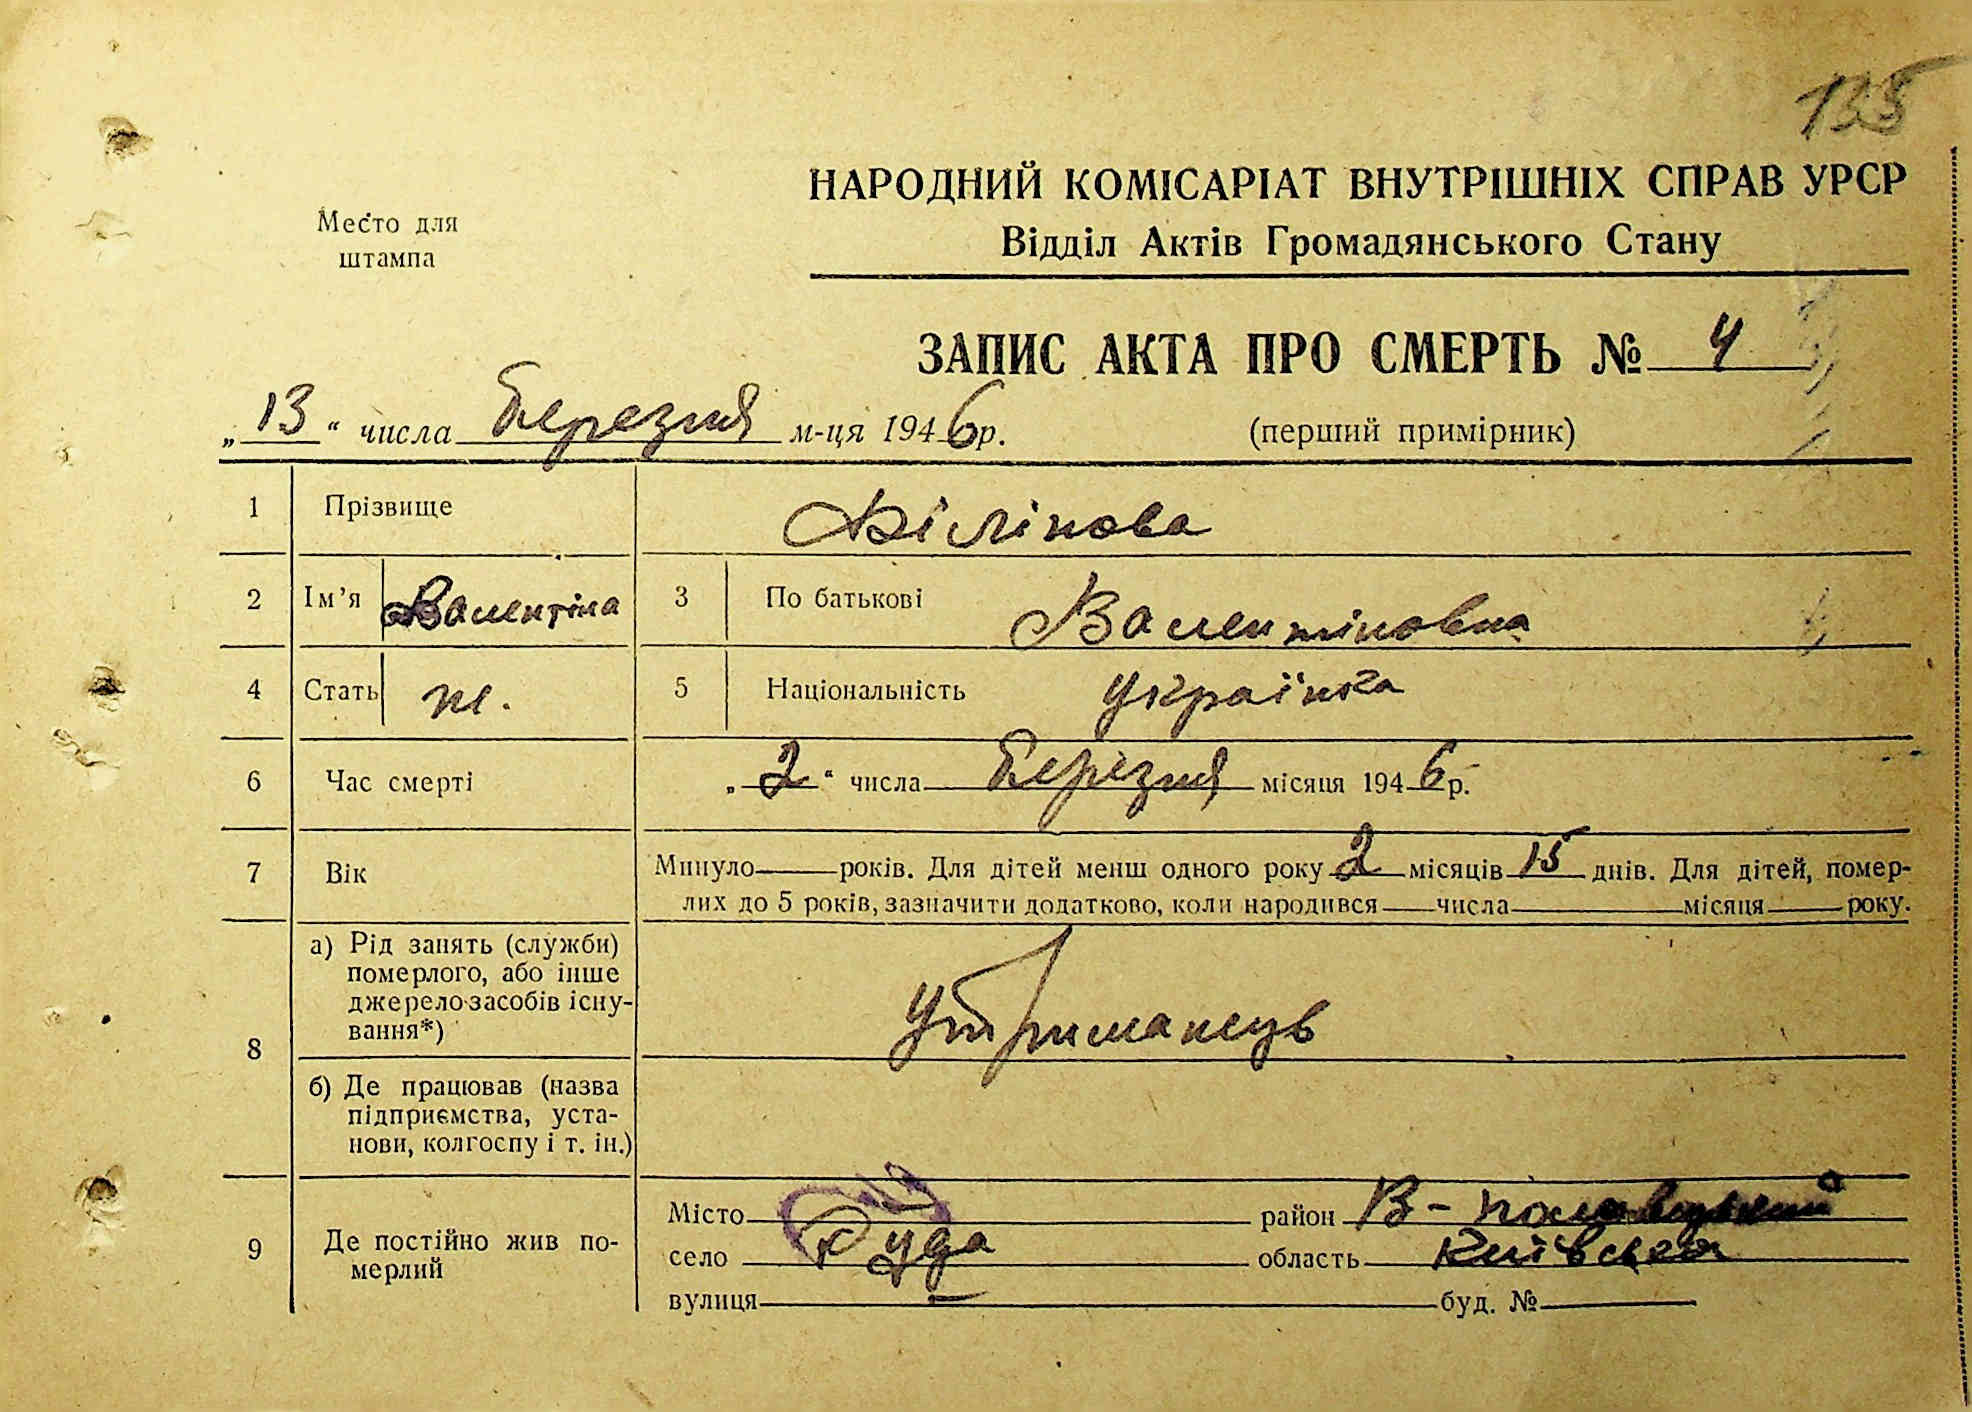 135
НАРОДНИЙ КОМІСАРІАТ ВНУТРІШНІХ СПРАВ УРСР
Место для штампа
Відділ Актів Громадянського Стану
ЗАПИС АКТА ПРО СМЕРТЬ № 4
„13“ числа Березня м-ця 1946р.
(перший примірник)
1 Прізвище Вілінова
2 Ім’я Валентіна 3 По батькові Валентіновна
4 Стать ж. 5 Національність Українка
6 Час смерті „2“ числа Березня місяця 1946р.
7 Вік Минуло років. Для дітей менш одного року 2 місяців 15 днів. Для дітей, помер-
лих до 5 років, зазначити додатково, коли народився числа місяця року.
8 а) Рід занять (служби)
померлого, або інше
джерело засобів існу-
вання*)
Утриманець
б) Де працював (назва
підприємства, уста-
нови, колгоспу і т. ін.)
9 Де постійно жив по-
мерлий
Місто район В-Половецкий
село Руда область Київська
вулиця буд. №